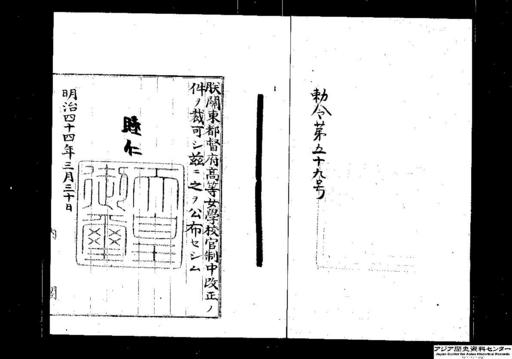 勅令第五十九号
朕關東都督府高等女學校官制中改正ノ
件ヲ裁可シ玆ニ之ヲ公布セシム
睦仁
天皇
御璽
明治四十四年三月三十日
内閣
アジア歴史資料センター
Japan Center for Asian Historical Records